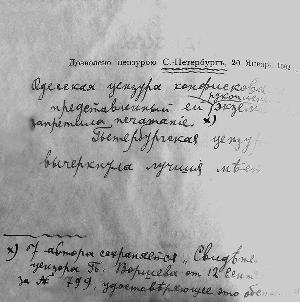 Дозволено цензурою С.-Петербургъ, 20 Январ
Одесская цензура конфискова
рукописн
представленный ей экзем
запретила печатаніе x)
Петербургская цензу
вычеркнула лучшія мѣст
x) У автора сохраняется „Свидѣте
цензора П. Воршева от 12 Сент
за № 799, удостовѣряющее это обст